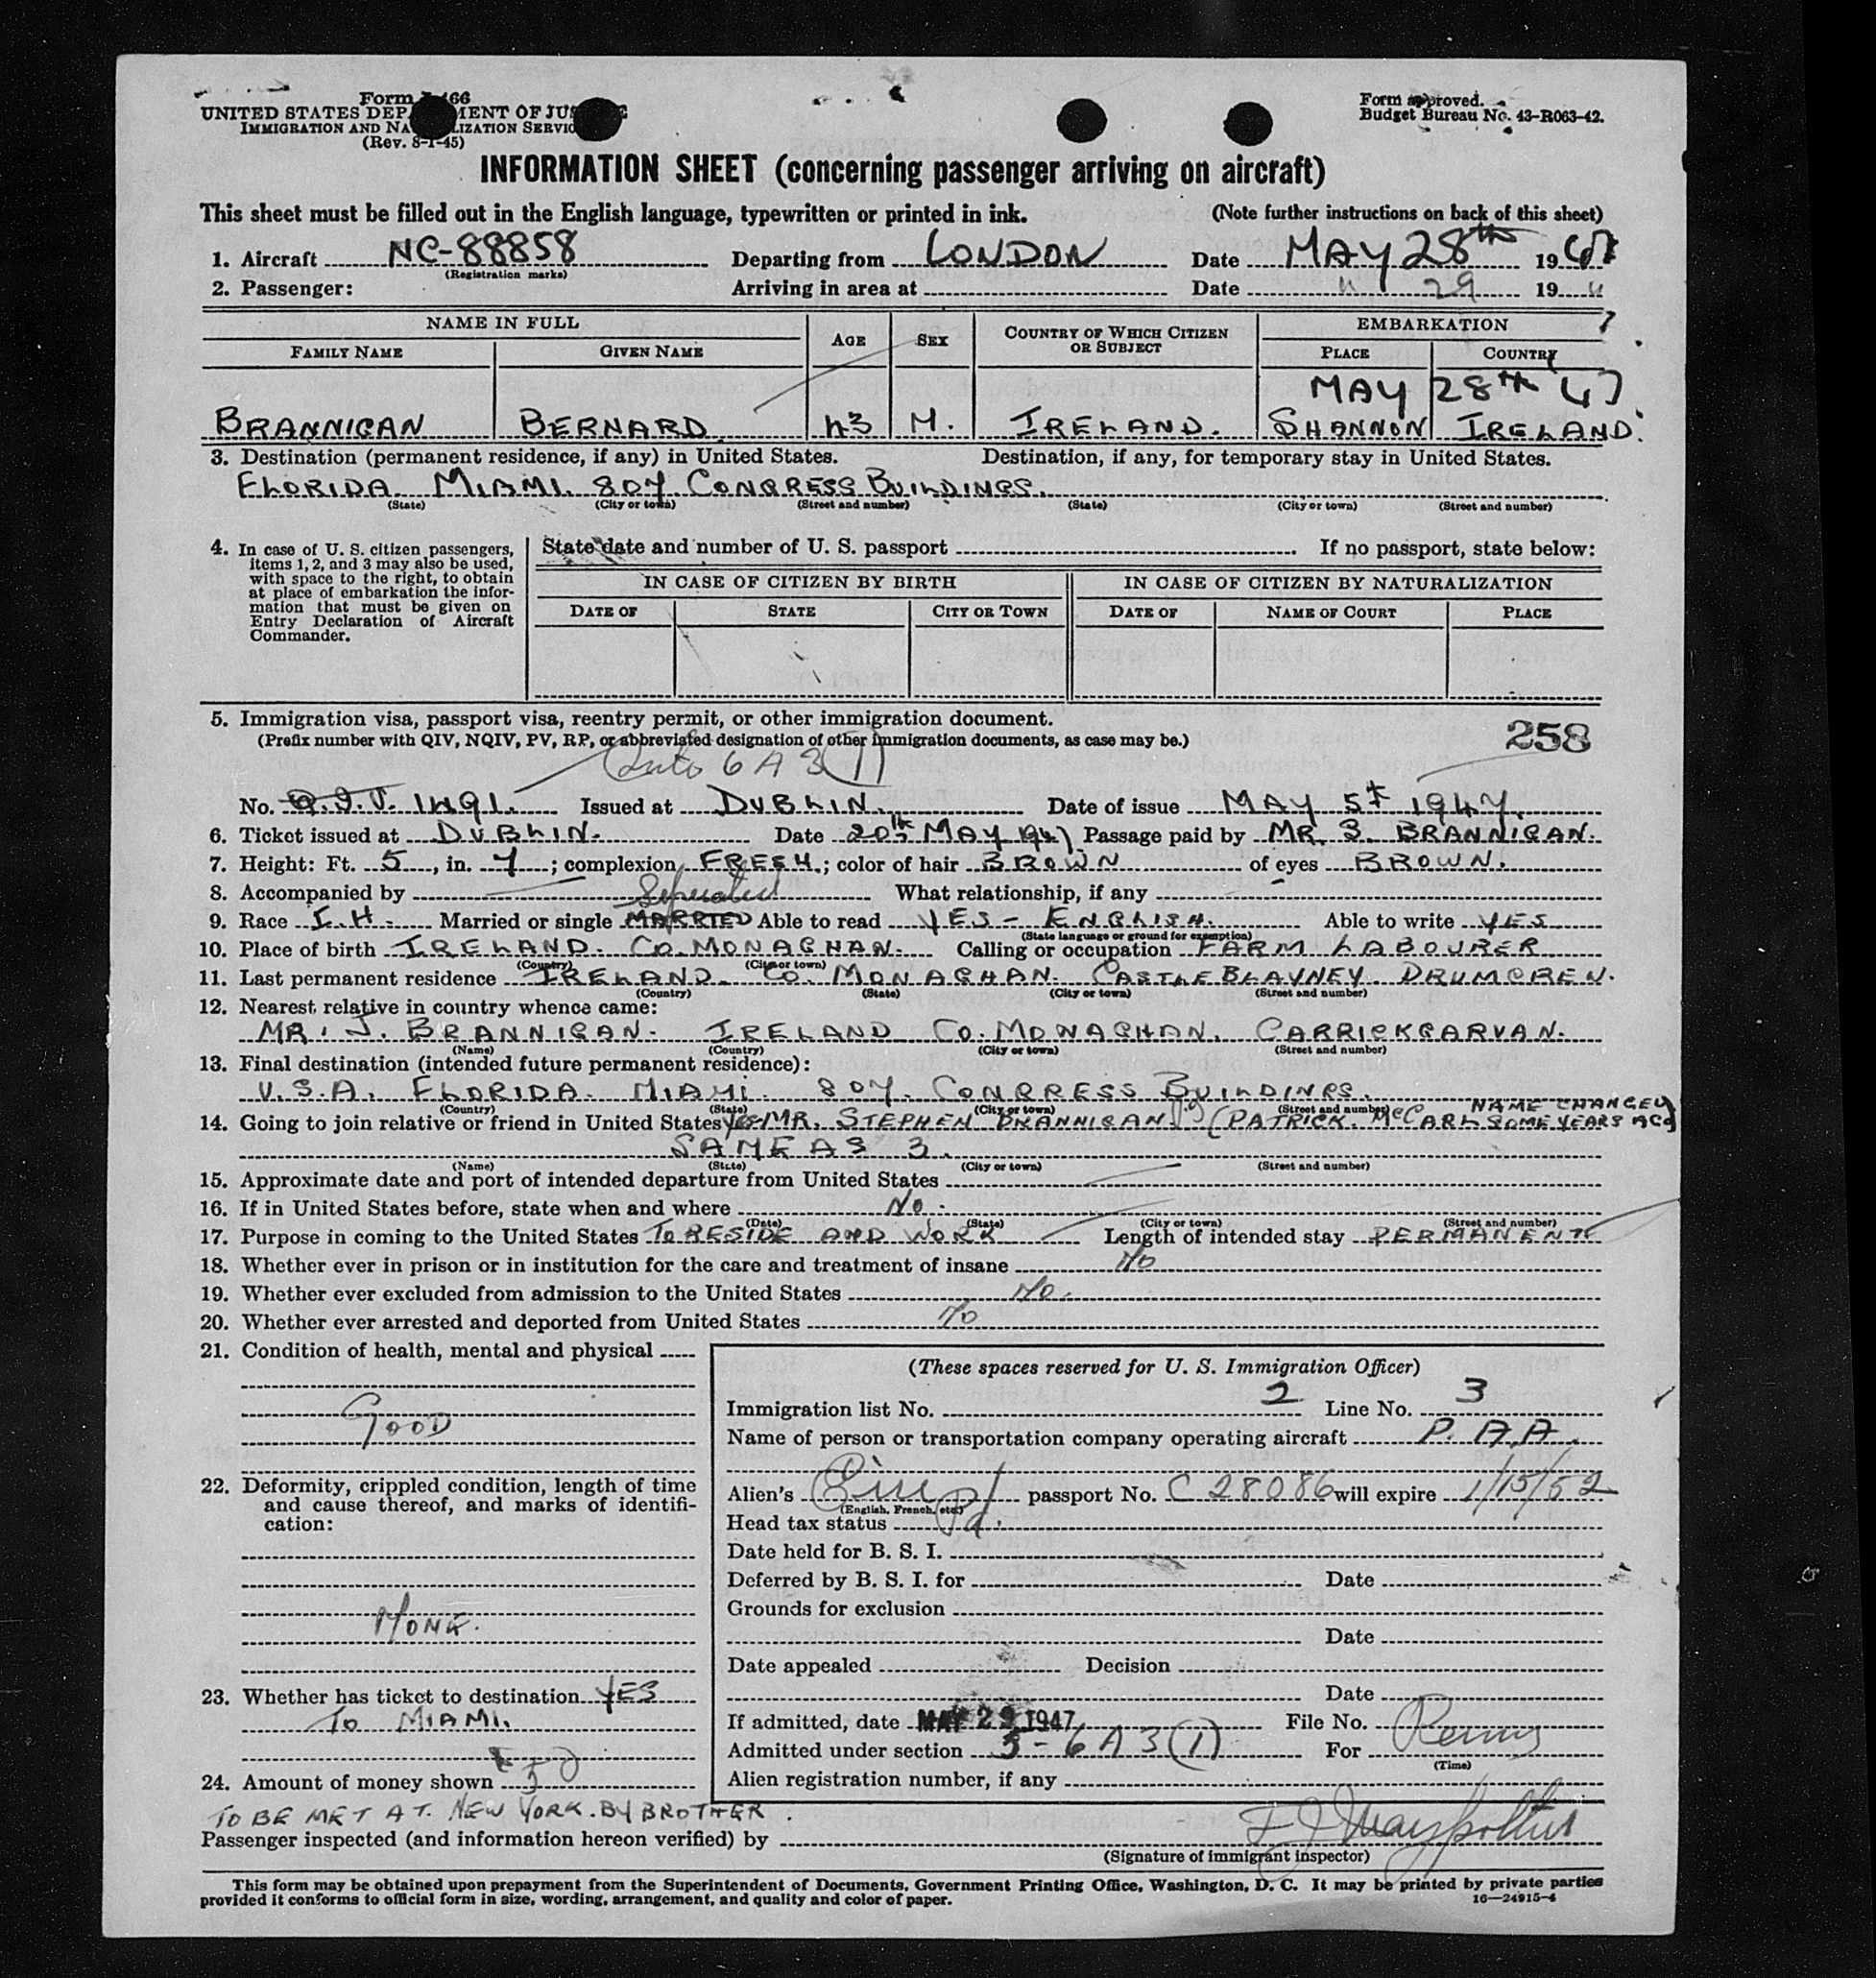 Form I-466
UNITED STATES DEPARTMENT OF JUSTICE
IMMIGRATION AND NATURALIZATION SERVICE
(Rev. 8-1-45)
Form approved.
Budget Bureau No. 43-R063-42.
INFORMATION SHEET (concerning passenger arriving on aircraft)
This sheet must be filled out in the English language, typewritten or printed in ink. (Note further instructions on back of this sheet)
1. Aircraft NC-88858 Departing from LONDON Date MAY 28th 1947
(Registration marks)
2. Passenger: Arriving in area at Date " 29 19 "
NAME IN FULL AGE SEX COUNTRY OF WHICH CITIZEN OR SUBJECT EMBARKATION
FAMILY NAME GIVEN NAME PLACE COUNTRY
MAY 28th 47
BRANNIGAN BERNARD 43 M. IRELAND. SHANNON IRELAND.
3. Destination (permanent residence, if any) in United States. Destination, if any, for temporary stay in United States.
FLORIDA. MIAMI. 807 CONGRESS BUILDINGS.
(State) (City or town) (Street and number) (State) (City or town) (Street and number)
4. In case of U. S. citizen passengers, items 1, 2, and 3 may also be used, with space to the right, to obtain at place of embarkation the information that must be given on Entry Declaration of Aircraft Commander.
State date and number of U. S. passport If no passport, state below:
IN CASE OF CITIZEN BY BIRTH IN CASE OF CITIZEN BY NATURALIZATION
DATE OF STATE CITY OR TOWN DATE OF NAME OF COURT PLACE
5. Immigration visa, passport visa, reentry permit, or other immigration document.
(Prefix number with QIV, NQIV, PV, RP, or abbreviated designation of other immigration documents, as case may be.) 258
6 A 3 (1)
No. 1491. Issued at DUBLIN. Date of issue MAY 5th 1947.
6. Ticket issued at DUBLIN. Date 20th MAY 1947 Passage paid by MR. S. BRANNIGAN.
7. Height: Ft. 5, in. 7; complexion FRESH.; color of hair BROWN of eyes BROWN.
8. Accompanied by What relationship, if any
Separated
9. Race I.H. Married or single MARRIED Able to read YES - ENGLISH. Able to write YES
(State language or ground for exemption)
10. Place of birth IRELAND. CO. MONAGHAN. Calling or occupation FARM LABOURER
(Country) (City or town)
11. Last permanent residence IRELAND. CO. MONAGHAN. CASTLEBLAYNEY. DRUMCREN.
(Country) (State) (City or town) (Street and number)
12. Nearest relative in country whence came:
MR. J. BRANNIGAN. IRELAND CO. MONAGHAN. CARRICKGARVAN.
(Name) (Country) (City or town) (Street and number)
13. Final destination (intended future permanent residence):
U.S.A. FLORIDA. MIAMI. 807. CONGRESS BUILDINGS.
(Country) (State) (City or town) (Street and number) NAME CHANGED
14. Going to join relative or friend in United States Yes MR. STEPHEN BRANNIGAN (PATRICK. McCARL SOME YEARS AGO)
SAME AS 3.
(Name) (State) (City or town) (Street and number)
15. Approximate date and port of intended departure from United States
16. If in United States before, state when and where No.
(Date) (State) (City or town) (Street and number)
17. Purpose in coming to the United States TO RESIDE AND WORK Length of intended stay PERMANENT
18. Whether ever in prison or in institution for the care and treatment of insane No
19. Whether ever excluded from admission to the United States No.
20. Whether ever arrested and deported from United States No
21. Condition of health, mental and physical
GOOD
22. Deformity, crippled condition, length of time and cause thereof, and marks of identification:
NONE.
23. Whether has ticket to destination YES
TO MIAMI.
24. Amount of money shown 50
(These spaces reserved for U. S. Immigration Officer)
Immigration list No. 2 Line No. 3
Name of person or transportation company operating aircraft P. A.A.
Alien's Eire passport No. C 28086 will expire 1/15/52
(English, French, etc.)
Head tax status Pd.
Date held for B. S. I.
Deferred by B. S. I. for Date
Grounds for exclusion
Date
Date appealed Decision
Date
If admitted, date MAY 29 1947 File No.
Admitted under section 3 - 6 A 3 (1) For Perm
(Time)
Alien registration number, if any
TO BE MET AT. NEW YORK. BY BROTHER.
Passenger inspected (and information hereon verified) by
(Signature of immigrant inspector)
This form may be obtained upon prepayment from the Superintendent of Documents, Government Printing Office, Washington, D. C. It may be printed by private parties
provided it conforms to official form in size, wording, arrangement, and quality and color of paper. 16—24915-4